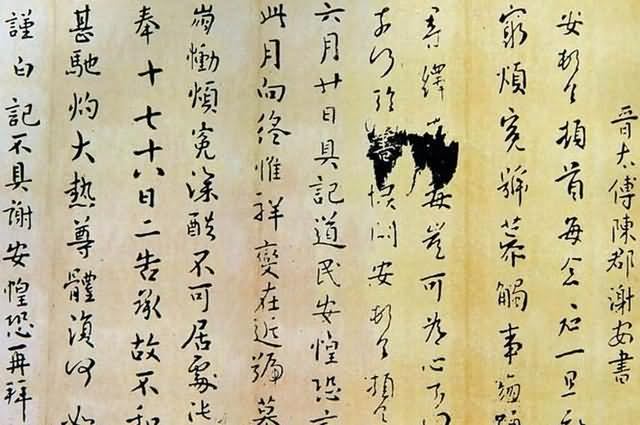 晉太傅陳郡謝安書
安頓首頓首每念君一旦知
窮煩冤號慕觸事崩踊
尋繹毒豈可為心奈何
奈何臨書惋悶安頓首頓首
六月廿日具記道民安惶恐言
此月向終惟祥變在近號慕
崩慟煩冤深酷不可居處比
奉十七十八日二告承故不和
甚馳灼大熱尊體復何如
謹白記不具謝安惶恐再拜